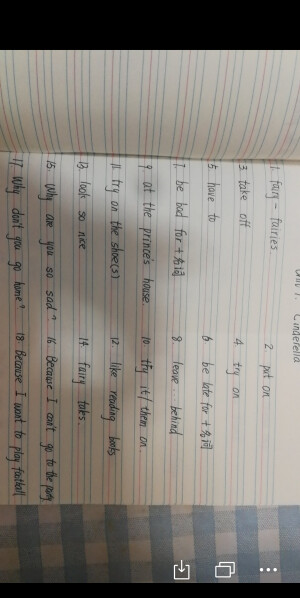 Unit 1 Cinderella
1 fairy - fairies 2 put on
3 take off 4 try on
5 have to 6 be late for + 名词
7 be bad for + 名词 8 leave ... behind
9 at the prince's house 10 try it / them on
11 try on the shoe(s) 12 like reading books
13 look so nice 14 fairy taks.
15 Why are you so sad? 16 Because I can't go to the party
17 Why don't you go home? 18 Because I want to play football